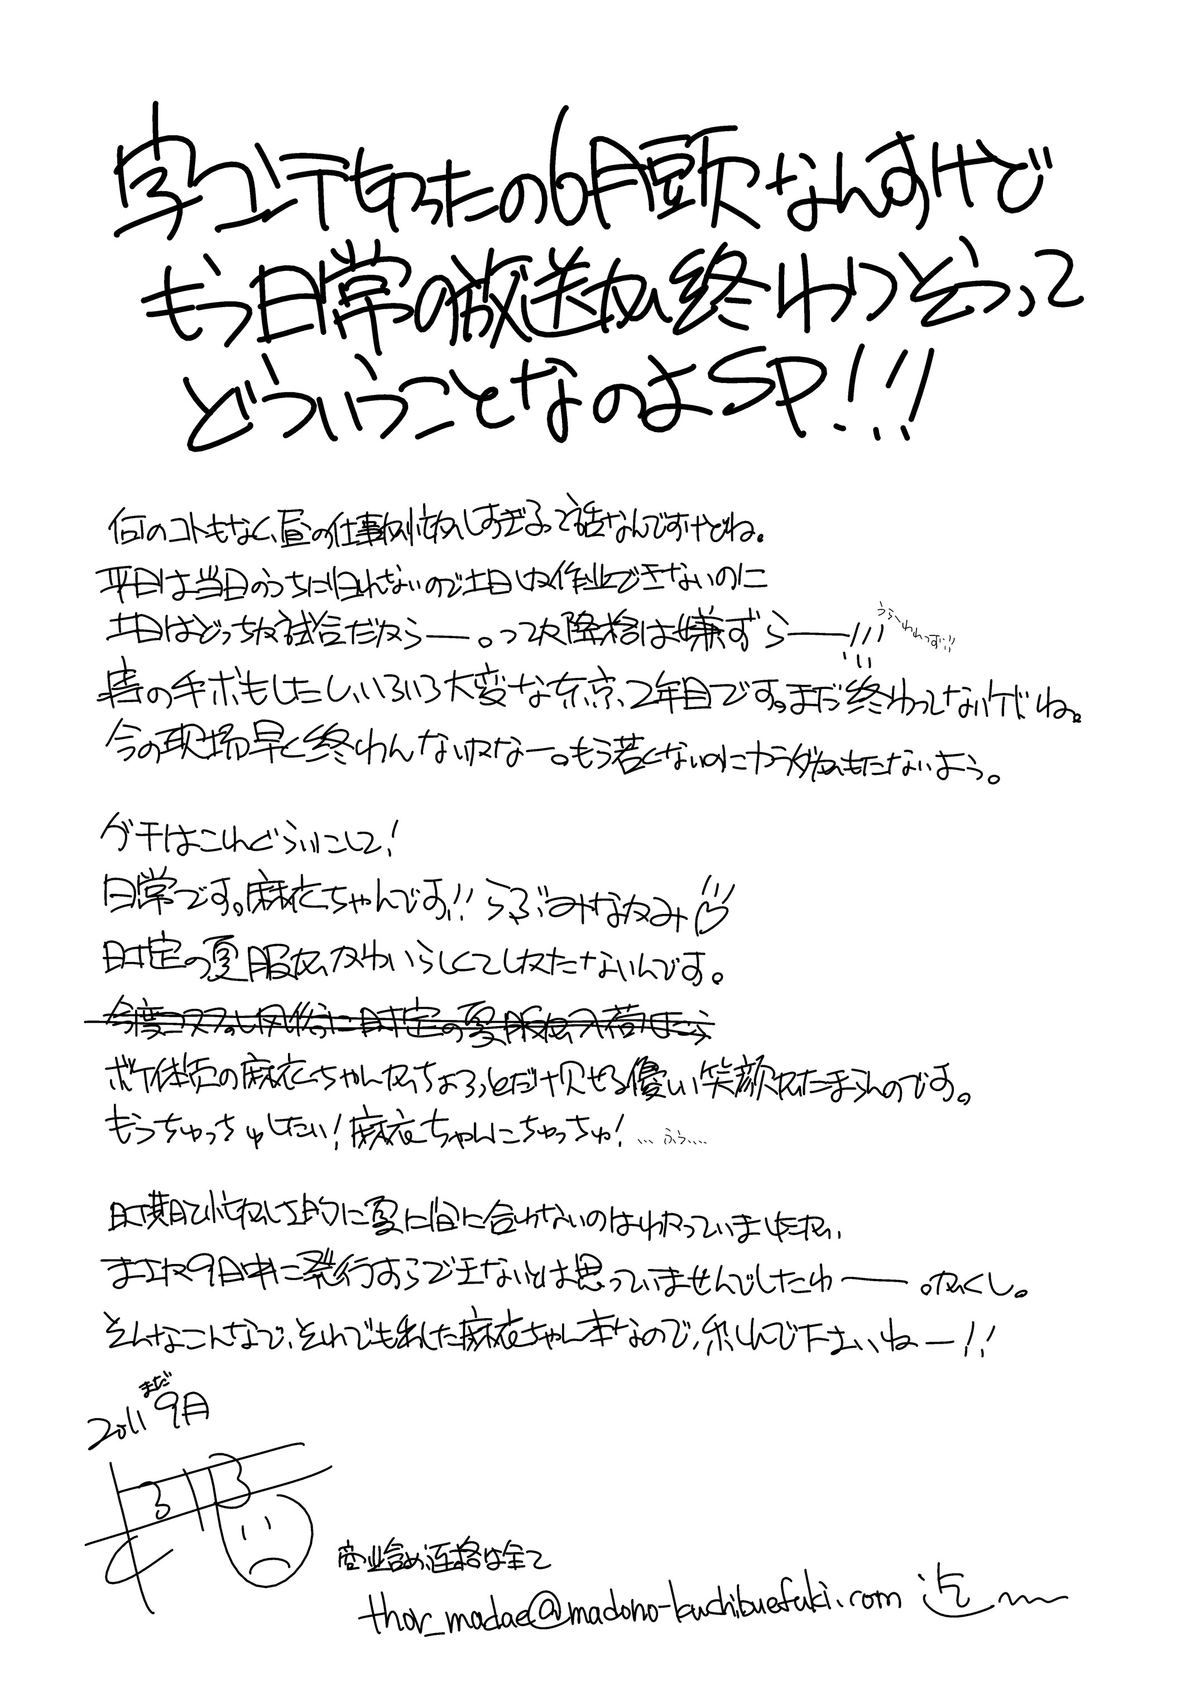 字コンテ切ったの6月頭なんすけど
もう日常の放送が終わりそうって
どういうことなのよSP!!!
何のコトもなく、昼の仕事が忙しすぎるって話なんですけどね。
平日は当日のうちに帰れないので土日しか作業できないのに
土日はどっちか試合だから——。って次降格は嫌ずら——!!!
うら〜わわっず!!
毒の手ボもしたし、いろいろ大変な東京、2年目です。まだ終わってないケドね。
今の現場早く終わんないかなー。もう若くないのにカラダがもたないよう。
グチはこれぐらいにして!
日常です。麻衣ちゃんです!! らぶみなかみ♡
時定の夏服がかわいらしくてしかたないんです。
今度コスプレ風俗に時定の夏服が入荷したら
ボケ体質の麻衣ちゃんがちょろっとだけ見せる優しい笑顔がたまらんのです。
もうちゅっちゅしたい!麻衣ちゃんにちゅっちゅ! … ふぅ…
時期と忙しさ的に夏に間に合わないのはわかっていましたが、
まさか9月中に発行すらできないとは思っていませんでしたわ——。がくし。
そんなこんなで、それでも出した麻衣ちゃん本なので、楽しんで下さいねー!!
まだ
2011 9月
商業含め、連絡は全て
thor_madae@madono-kuchibuefuki.com 迄〜〜